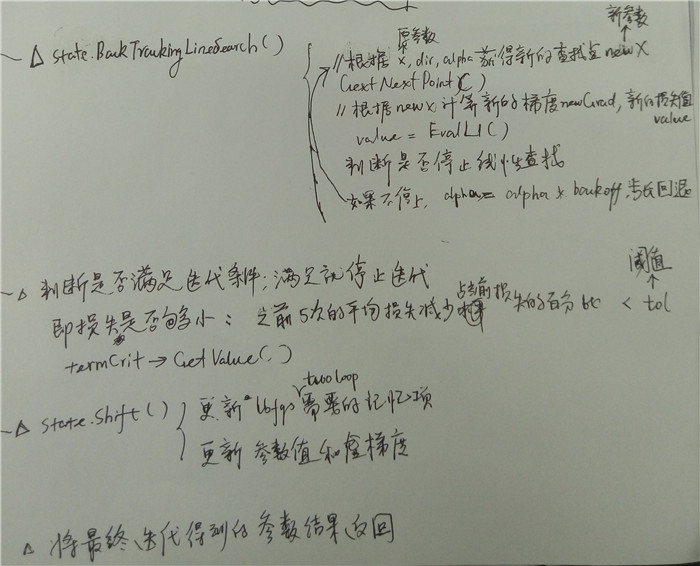 新参数
原参数
△ state.BackTrackingLineSearch()
// 根据 x, dir, alpha 获得新的查找点 newX
GetNextPoint()
// 根据newx计算新的梯度newGrad, 新的损失值
value
value = EvalL1()
判断是否停止线性查找
如果不停止, alpha = alpha × backoff, 步长回退
△ 判断是否满足迭代条件; 满足就停止迭代
阈值
即损失是否够小: 之前5次的平均损失减少占当前损失的百分比 < tol
termCrit → GetValue()
two loop
△ state.Shift()
更新 lbfgs 需要的记忆项
更新 参数值和梯度
△ 将最终迭代得到的参数结果返回